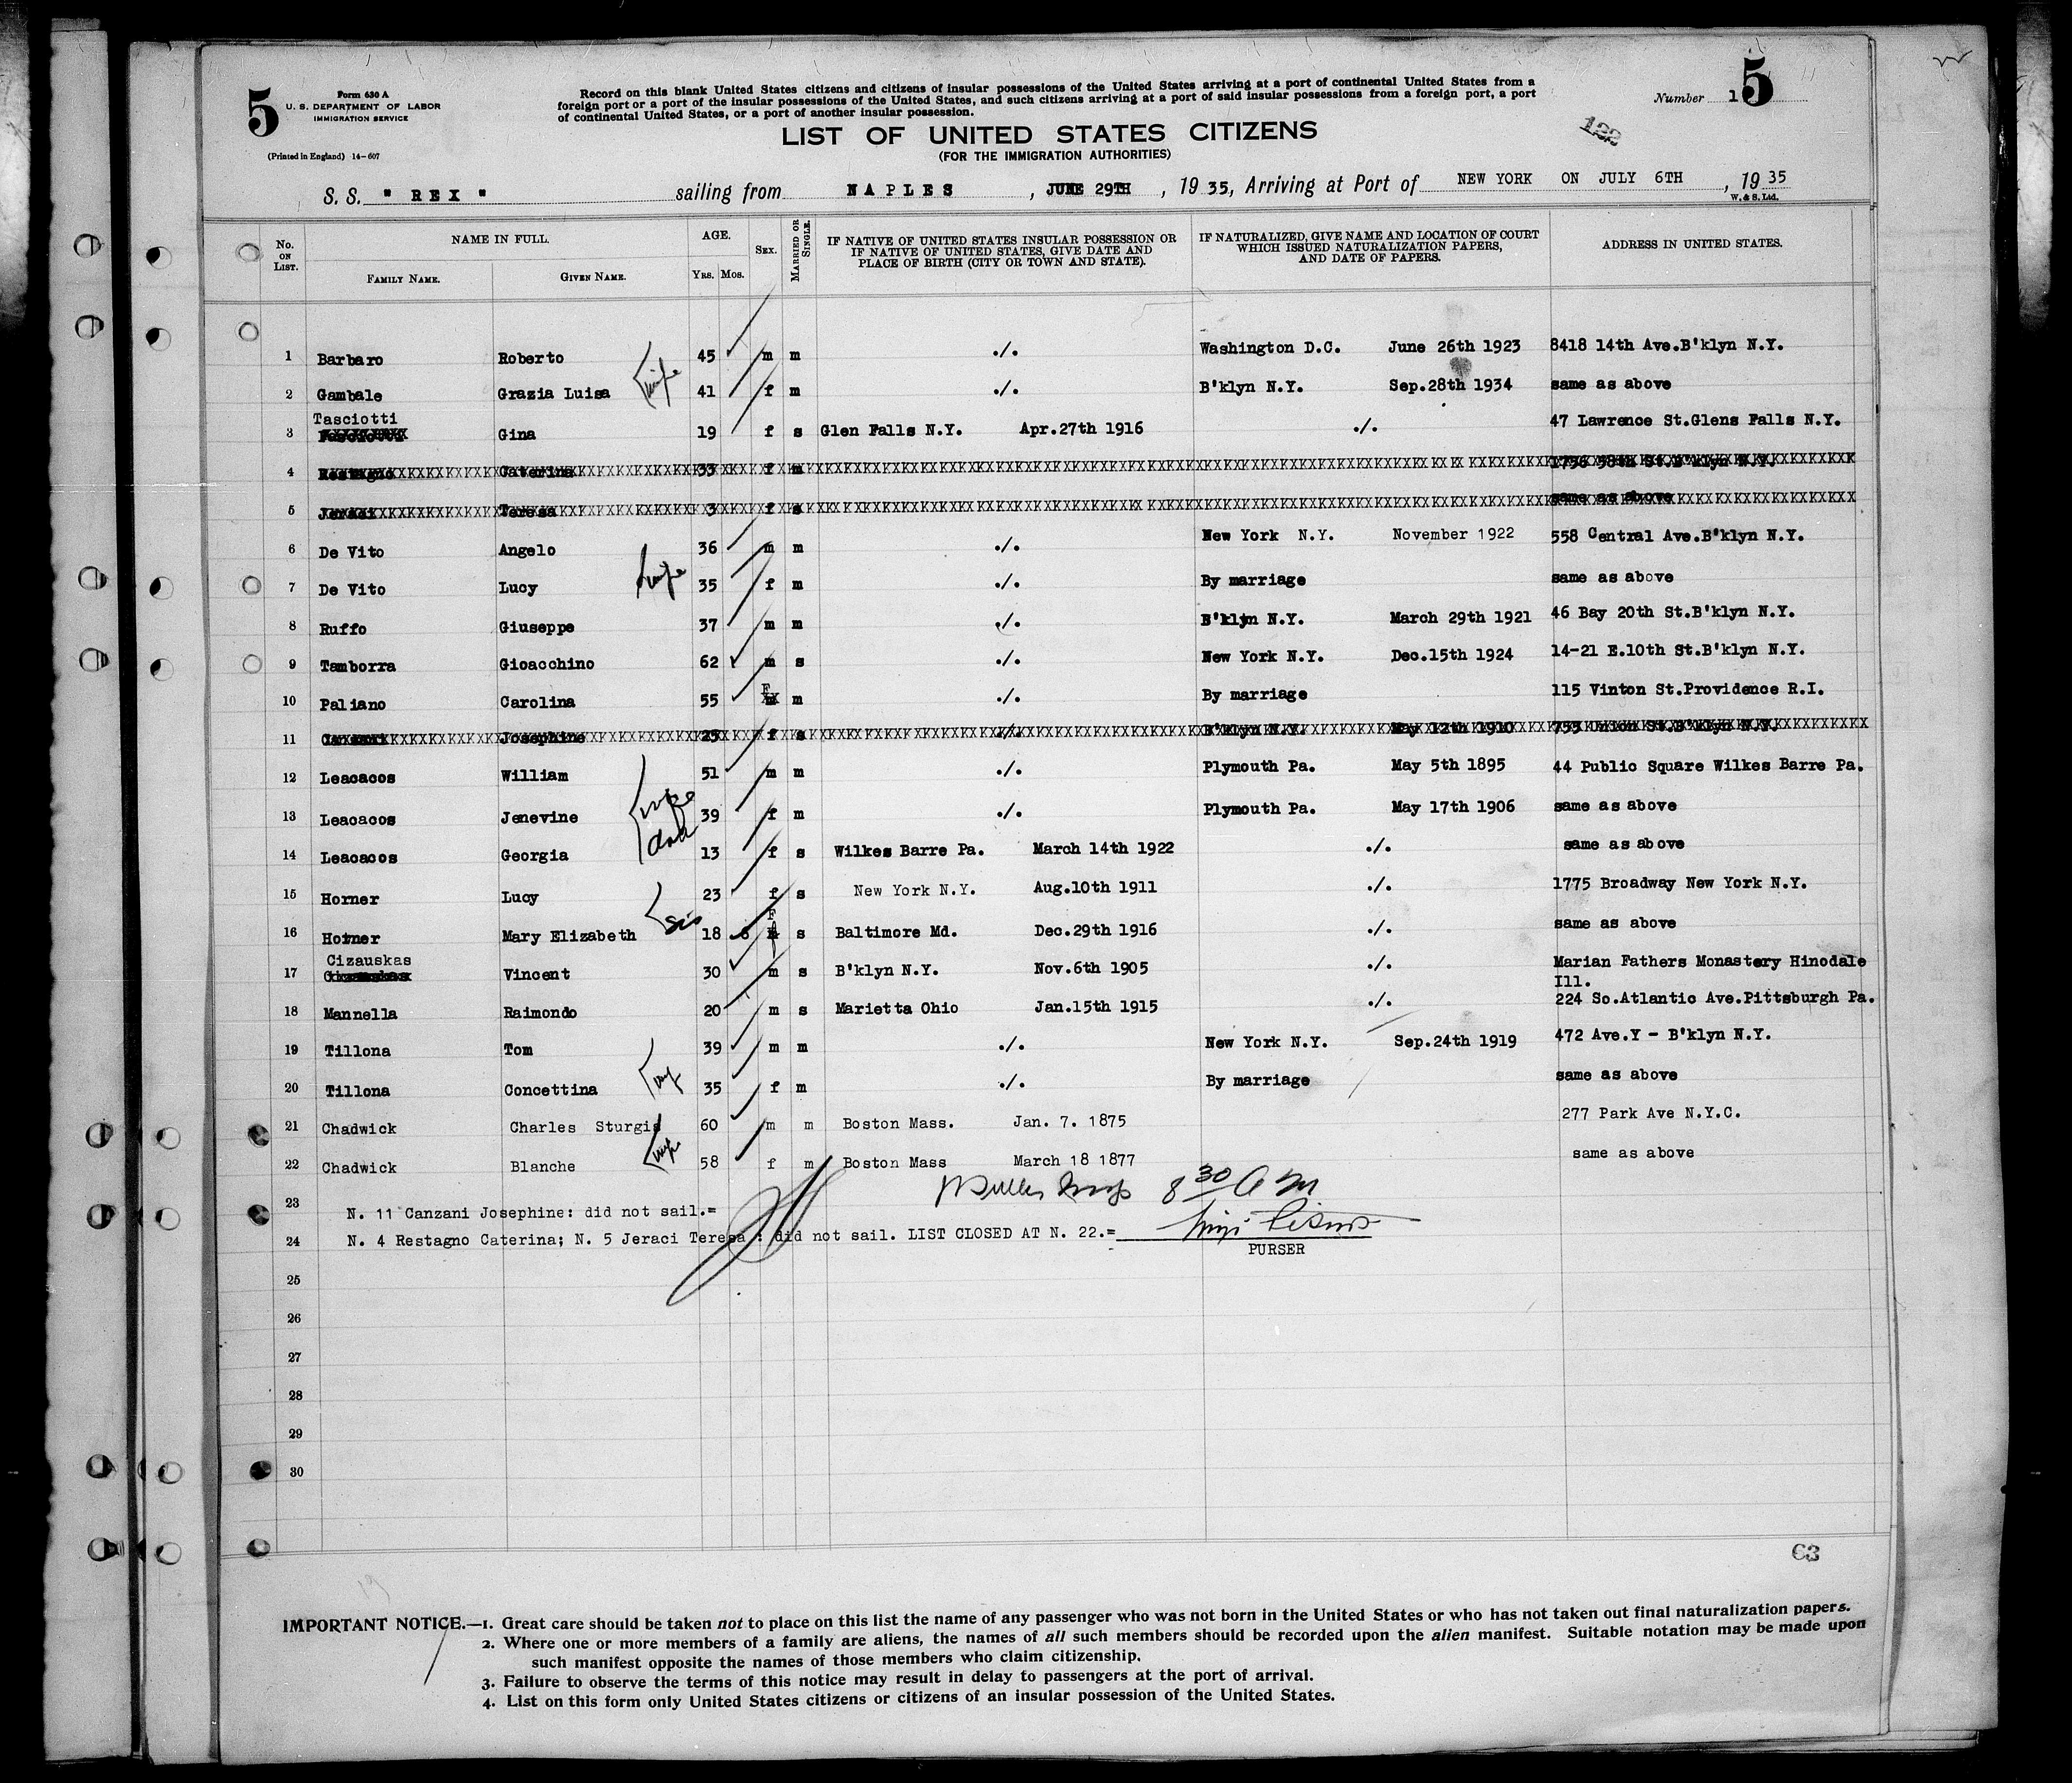 5
Form 630 A
U. S. DEPARTMENT OF LABOR
IMMIGRATION SERVICE
(Printed in England) 14-607
Record on this blank United States citizens and citizens of insular possessions of the United States arriving at a port of continental United States from a
foreign port or a port of the insular possessions of the United States, and such citizens arriving at a port of said insular possessions from a foreign port, a port
of continental United States, or a port of another insular possession.
Number 1 5
122
LIST OF UNITED STATES CITIZENS
(FOR THE IMMIGRATION AUTHORITIES)
S. S. " REX " sailing from NAPLES, JUNE 29TH, 1935, Arriving at Port of NEW YORK ON JULY 6TH, 1935
W. & S. Ltd.
No. ON LIST. NAME IN FULL. FAMILY NAME. GIVEN NAME. AGE. YRS. MOS. SEX. MARRIED OR SINGLE. IF NATIVE OF UNITED STATES INSULAR POSSESSION OR IF NATIVE OF UNITED STATES, GIVE DATE AND PLACE OF BIRTH (CITY OR TOWN AND STATE). IF NATURALIZED, GIVE NAME AND LOCATION OF COURT WHICH ISSUED NATURALIZATION PAPERS, AND DATE OF PAPERS. ADDRESS IN UNITED STATES.
1 Barbaro Roberto 45 m m ./. Washington D.C. June 26th 1923 8418 14th Ave.B'klyn N.Y.
2 Gambale Grazia Luisa wife 41 f m ./. B'klyn N.Y. Sep.28th 1934 same as above
Tasciotti
3 Gina 19 f s Glen Falls N.Y. Apr.27th 1916 ./. 47 Lawrence St.Glens Falls N.Y.
4 Restagno Caterina 33 f m 1756 58th St.B'klyn N.Y.
5 Jeraci Teresa 3 f s same as above
6 De Vito Angelo 36 m m ./. New York N.Y. November 1922 558 Central Ave.B'klyn N.Y.
7 De Vito Lucy wife 35 f m ./. By marriage same as above
8 Ruffo Giuseppe 37 m m ./. B'klyn N.Y. March 29th 1921 46 Bay 20th St.B'klyn N.Y.
9 Tamborra Gioacchino 62 m s ./. New York N.Y. Dec.15th 1924 14-21 E.10th St.B'klyn N.Y.
10 Paliano Carolina 55 F m ./. By marriage 115 Vinton St.Providence R.I.
11 Canzani Josephine 25 f s ./. B'klyn N.Y. May 12th 1910 755 Union St.B'klyn N.Y.
12 Leacacos William 51 m m ./. Plymouth Pa. May 5th 1895 44 Public Square Wilkes Barre Pa.
13 Leacacos Jenevine wife 39 f m ./. Plymouth Pa. May 17th 1906 same as above
14 Leacacos Georgia dau 13 f s Wilkes Barre Pa. March 14th 1922 ./. same as above
15 Horner Lucy 23 f s New York N.Y. Aug.10th 1911 ./. 1775 Broadway New York N.Y.
16 Horner Mary Elizabeth sis 18 6 F s Baltimore Md. Dec.29th 1916 ./. same as above
Cizauskas
17 Vincent 30 m s B'klyn N.Y. Nov.6th 1905 ./. Marian Fathers Monastery Hinodale
Ill.
18 Mannella Raimondo 20 m s Marietta Ohio Jan.15th 1915 ./. 224 So.Atlantic Ave.Pittsburgh Pa.
19 Tillona Tom 39 m m ./. New York N.Y. Sep.24th 1919 472 Ave.Y - B'klyn N.Y.
20 Tillona Concettina 35 f m ./. By marriage same as above
21 Chadwick Charles Sturgis 60 m m Boston Mass. Jan. 7. 1875 277 Park Ave N.Y.C.
22 Chadwick Blanche wife 58 f m Boston Mass March 18 1877 same as above
8 30 A M
23 N. 11 Canzani Josephine: did not sail.=
24 N. 4 Restagno Caterina; N. 5 Jeraci Teresa : did not sail. LIST CLOSED AT N. 22.=
PURSER
25
26
27
28
29
30
63
IMPORTANT NOTICE.—1. Great care should be taken not to place on this list the name of any passenger who was not born in the United States or who has not taken out final naturalization papers.
2. Where one or more members of a family are aliens, the names of all such members should be recorded upon the alien manifest. Suitable notation may be made upon
such manifest opposite the names of those members who claim citizenship.
3. Failure to observe the terms of this notice may result in delay to passengers at the port of arrival.
4. List on this form only United States citizens or citizens of an insular possession of the United States.